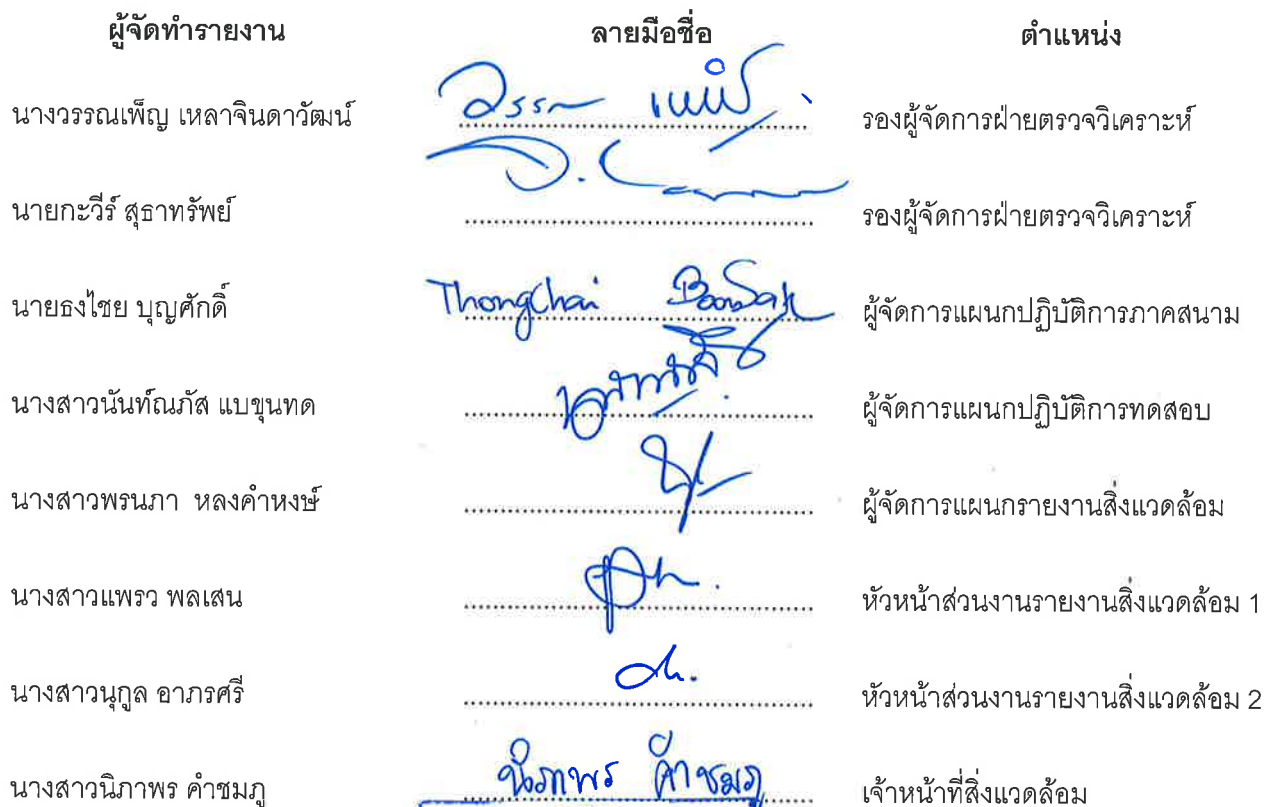 ผู้จัดทำรายงาน ลายมือชื่อ ตำแหน่ง
นางวรรณเพ็ญ เหลาจินดาวัฒน์ วรรณ เพ็ญ รองผู้จัดการฝ่ายตรวจวิเคราะห์
นายกะวีร์ สุธาทรัพย์ รองผู้จัดการฝ่ายตรวจวิเคราะห์
นายธงไชย บุญศักดิ์ Thongchai Boonsak ผู้จัดการแผนกปฏิบัติการภาคสนาม
นางสาวนันท์ณภัส แบขุนทด ผู้จัดการแผนกปฏิบัติการทดสอบ
นางสาวพรนภา หลงคำหงษ์ ผู้จัดการแผนกรายงานสิ่งแวดล้อม
นางสาวแพรว พลเสน หัวหน้าส่วนงานรายงานสิ่งแวดล้อม 1
นางสาวนุกูล อาภรศรี หัวหน้าส่วนงานรายงานสิ่งแวดล้อม 2
นางสาวนิภาพร คำชมภู นิภาพร คำชมภู เจ้าหน้าที่สิ่งแวดล้อม